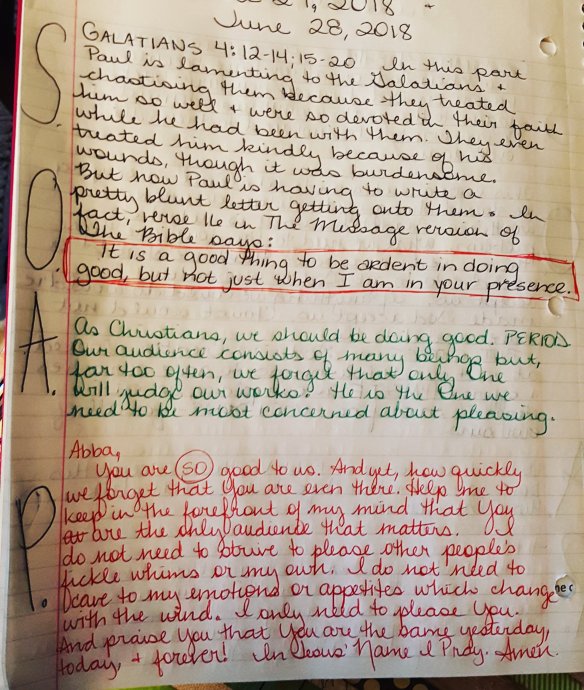 1, 2018
June 28, 2018
S. GALATIANS 4:12-14; 15-20 In this part
Paul is lamenting to the Galatians +
chastising them because they treated
him so well + were so devoted in their faith
while he had been with them. They even
treated him kindly because of his
wounds, though it was burdensome.
But now Paul is having to write a
pretty blunt letter getting onto them. In
O. fact, verse 11e in The Message version of
the Bible says:
It is a good thing to be ardent in doing
good, but not just when I am in your presence.
A. As Christians, we should be doing good. PERIOD.
Our audience consists of many beings but,
far too often, we forget that only One
will judge our works. He is the One we
need to be most concerned about pleasing.
P. Abba,
You are SO good to us. And yet, how quickly
we forget that You are even there. Help me to
keep in the forefront of my mind that You
at are the only audience that matters. I
do not need to strive to please other people's
fickle whims or my own. I do not need to
cave to my emotions or appetites which change
with the wind. I only need to please You.
And praise You that You are the same yesterday,
today, + forever! In Jesus' Name I Pray. Amen.